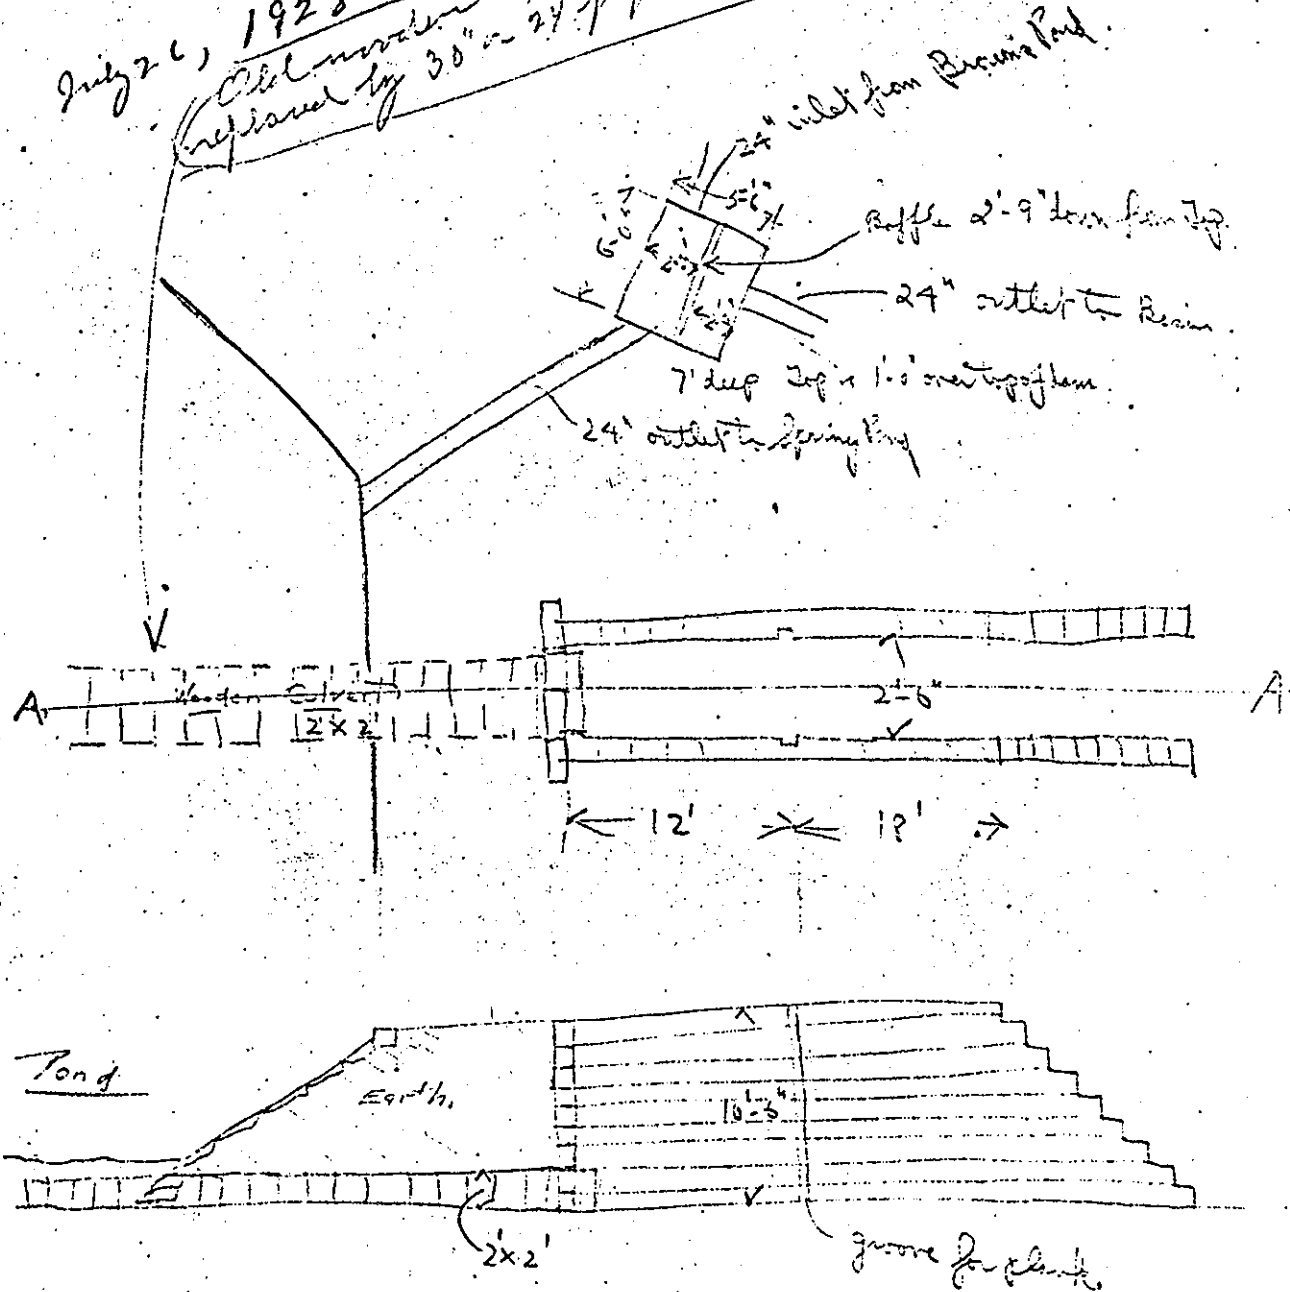 July 26, 1928
Old wooden
replaced by 30" or 24"
24" inlet from Brown's Pond.
5'-6"
6'-0"
Baffle 2'-9" down from Top.
24" outlet to Basin.
7' deep Top is 1'-0" over top of dam.
24" outlet to Spring Pond
A
Wooden Culvert
2' x 2'
2'-6"
A
12'
18'
Pond
Earth.
10'-6"
2' x 2'
groove for plank.